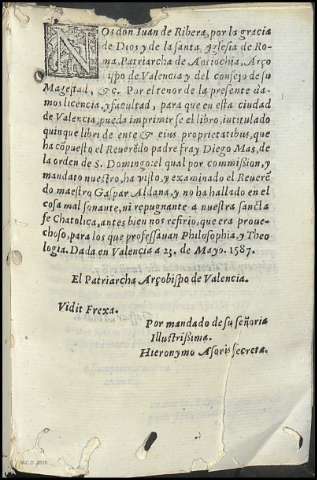 NOs don Iuan de Ribera, por la gracia
de Dios y de la santa Iglesia de Ro-
ma, Patriarcha de Antiochia, Arço
bispo de Valencia y del consejo de su
Magestad, &c. Por el tenor de la presente da-
mos licencia, y facultad, para que en esta ciudad
de Valencia, pueda imprimirse el libro, intitulado
quinque libri de ente & eius proprietatibus, que
ha cõpuesto el Reuerẽdo padre fray Diego Mas, de
la orden de S. Domingo: el qual por commission, y
mandato nuestro, ha visto, y examinado el Reuerẽ
do maestro Gaspar Aldana, y no ha hallado en el
cosa mal sonante, ni repugnante a nuestra sancta
fe Chatolica, antes bien nos refirio, que era proue-
choso, para los que professauan Philosophia, y Theo
logia. Dada en Valencia a 23. de Mayo. 1587.
El Patriarcha Arçobispo de Valencia.
Vidit Frexa.
Por mandado de su señoria
Illustrissima.
Hieronymo Asoris secreta.